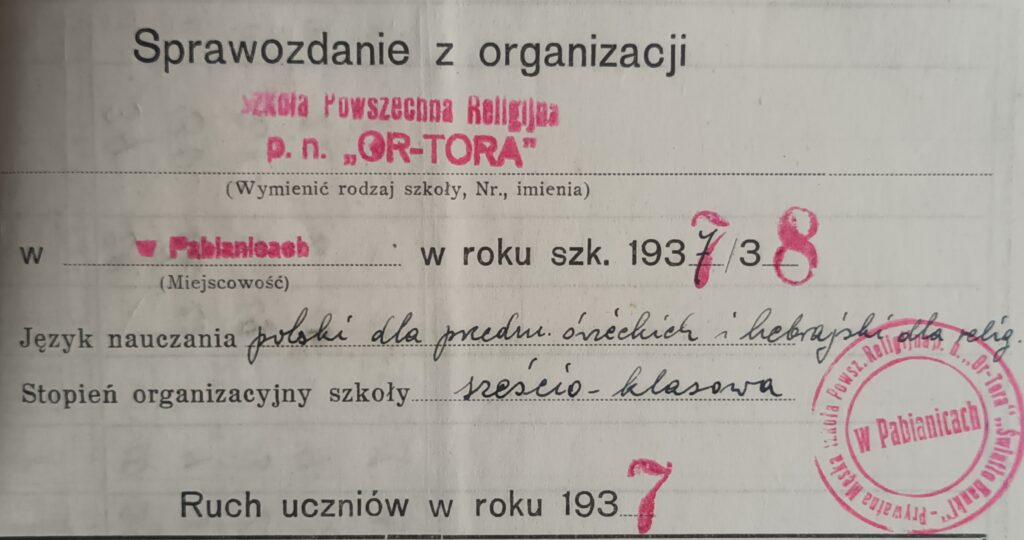 Sprawozdanie z organizacji
Szkoła Powszechna Religijna
p. n. „OR-TORA"
(Wymienić rodzaj szkoły, Nr., imienia)
w w Pabianicach w roku szk. 1937/38
(Miejscowość)
Język nauczania polski dla przedm. świeckich i hebrajski dla relig.
Stopień organizacyjny szkoły sześcio-klasowa
Prywatna Męska Szkoła Powsz. Religijna p. n. „Or-Tora"
w Pabianicach
Ruch uczniów w roku 1937